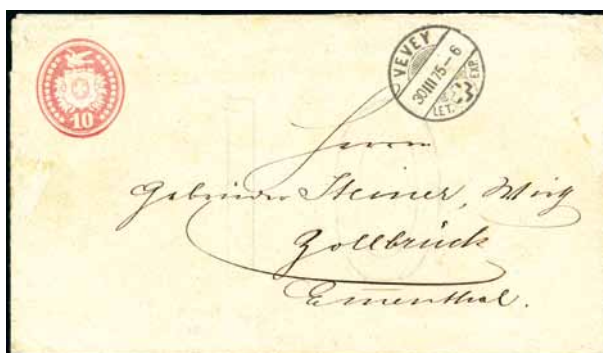 10
VEVEY
30 III 75-6
LET. EXP.
Herrn
Gebrüder Steiner, Wirth
Zollbrück
Emmenthal.